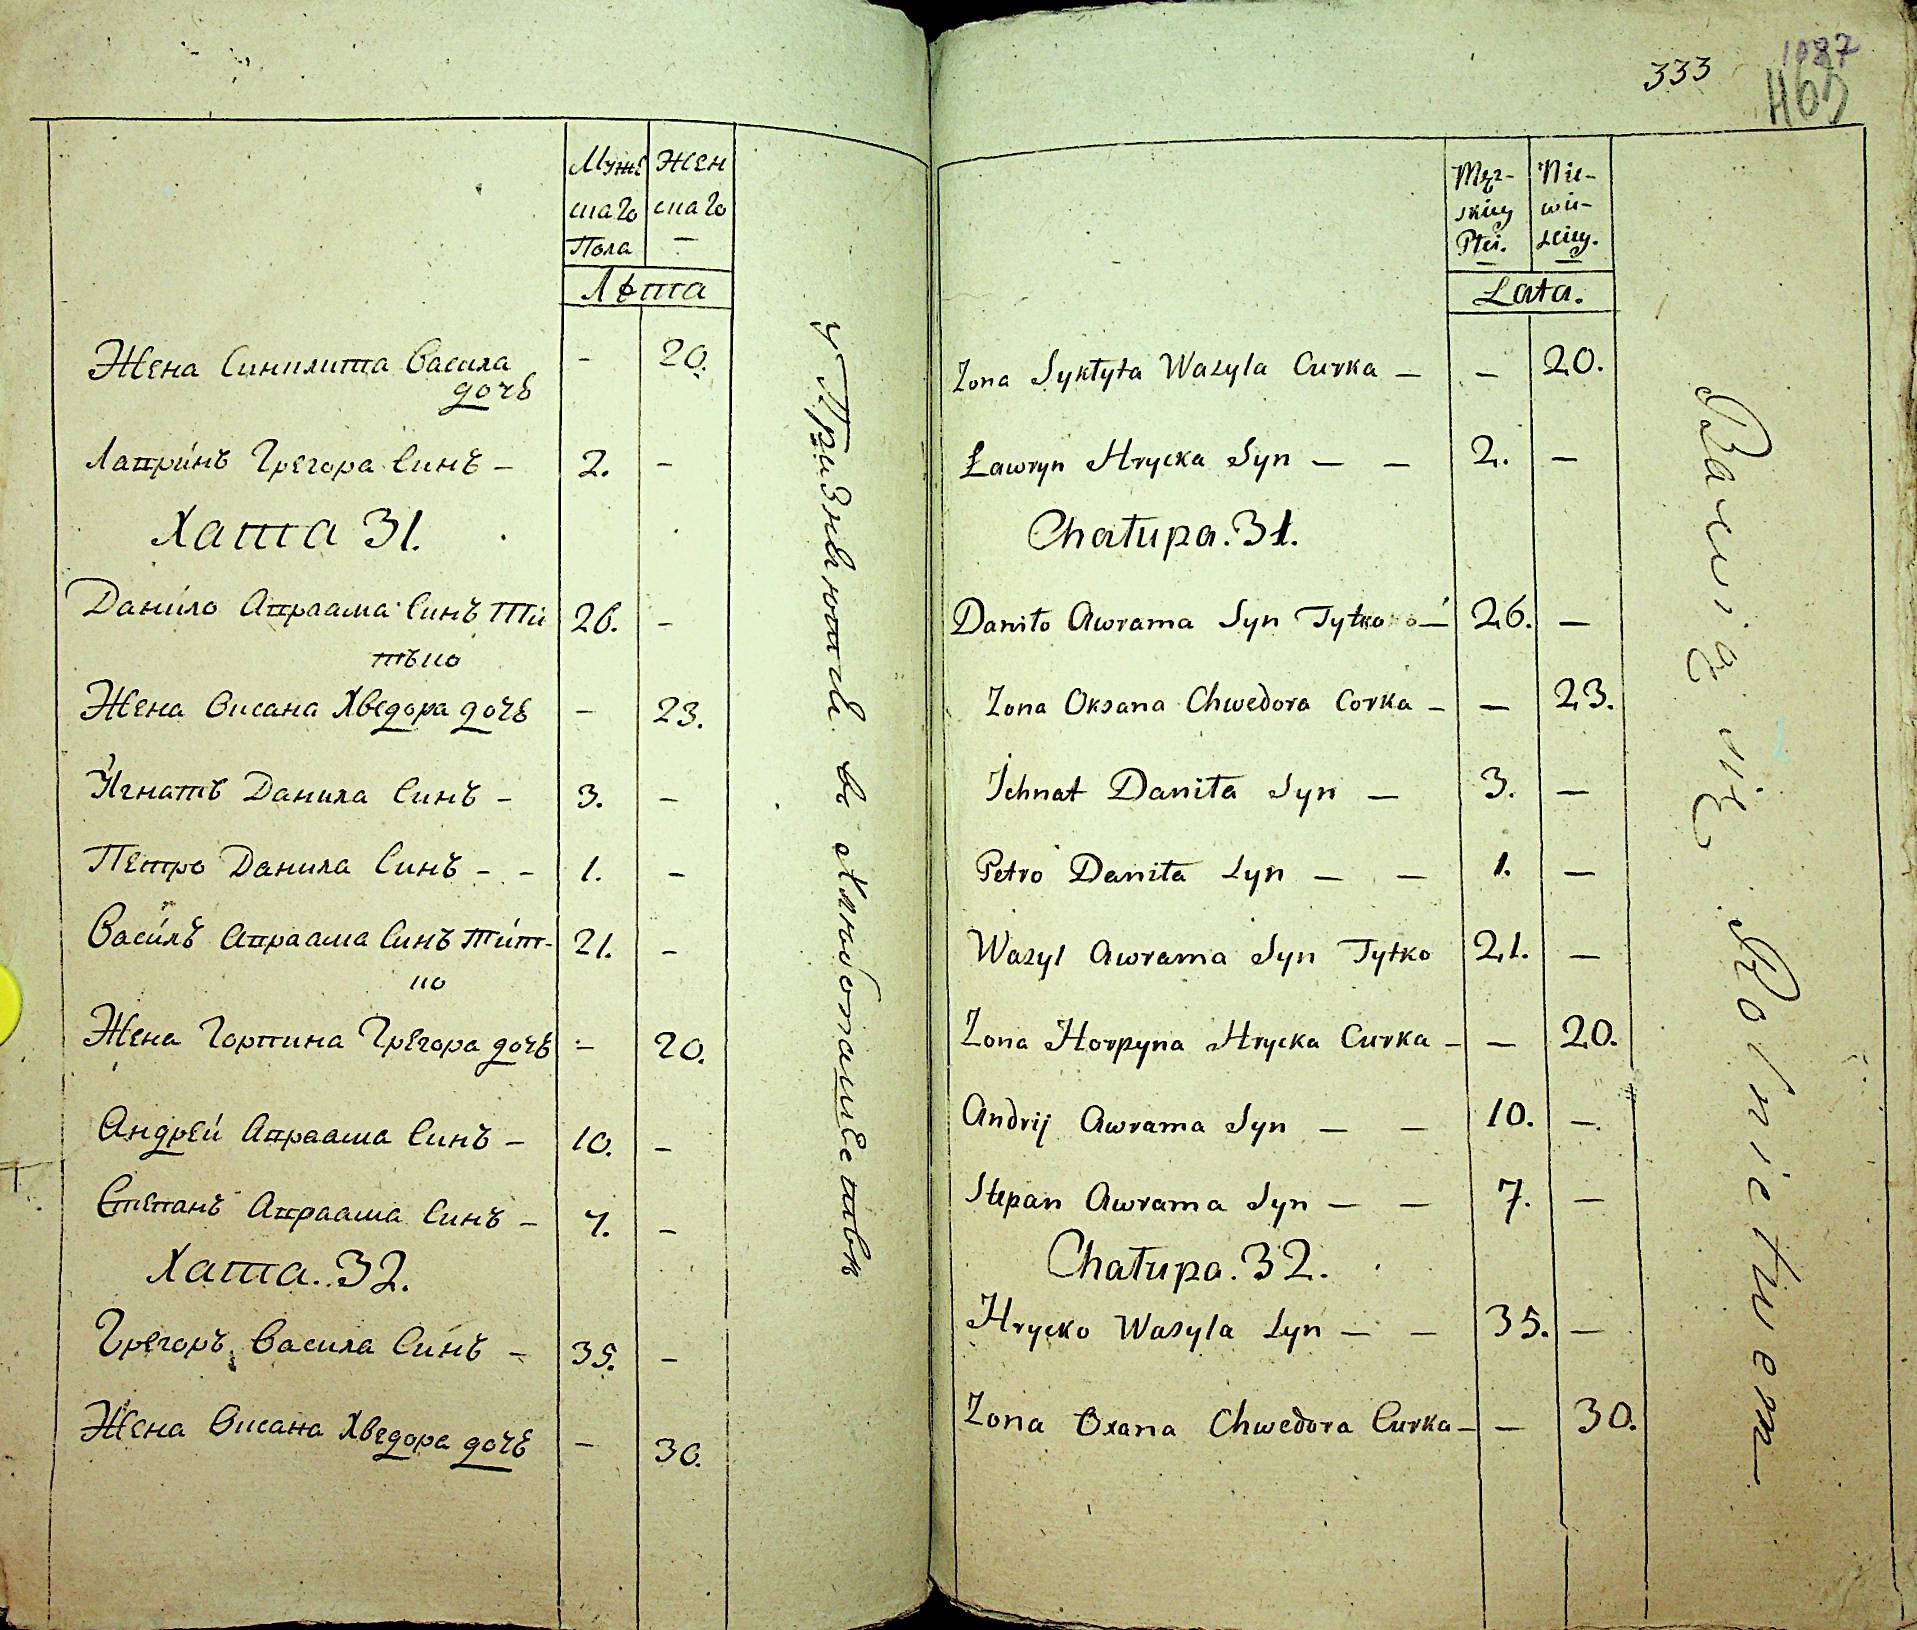 Муже Жен
скаго скаго
Пола —
Лѣта
Жена Сиклита Васила - 20.
дочь
Лавринъ Грегора Синъ — 2. —
Хата 31.
Данило Авраама Синъ Ти 26. —
тъко
Жена Оксана Хведора дочь — 23.
Игнатъ Данила Синъ — 3. —
Петро Данила Синъ - - 1. —
Василъ Авраама Синъ Тит- 21. —
ко
Жена Горпина Грегора дочь — 20.
Андрей Авраама Синъ — 10. —
Степанъ Авраама Синъ — 7. —
Хата. 32.
Грегоръ Васила Синъ — 35. —
Жена Оксана Хведора дочь — 30.
333
1087
Męz- Nie-
skiey wie-
Płci. sciey.
Lata.
Zona Syktyta Wasyla Curka — — 20.
Ławryn Hrycka Syn — — 2. —
Chałupa. 31.
Daniło Awrama Syn Tytko — 26. —
Zona Oksana Chwedora Corka — — 23.
Ichnat Daniła Syn — 3. —
Petro Daniła Syn — — 1. —
Wasyl Awrama Syn Tytko 21. —
Zona Horpyna Hrycka Curka — — 20.
Andrij Awrama Syn — — 10. —
Stepan Awrama Syn — — 7. —
Chałupa. 32.
Hrycko Wasyla Syn — — 35. —
Zona Oxana Chwedora Curka — — 30.
Bawią się Rolnictwem